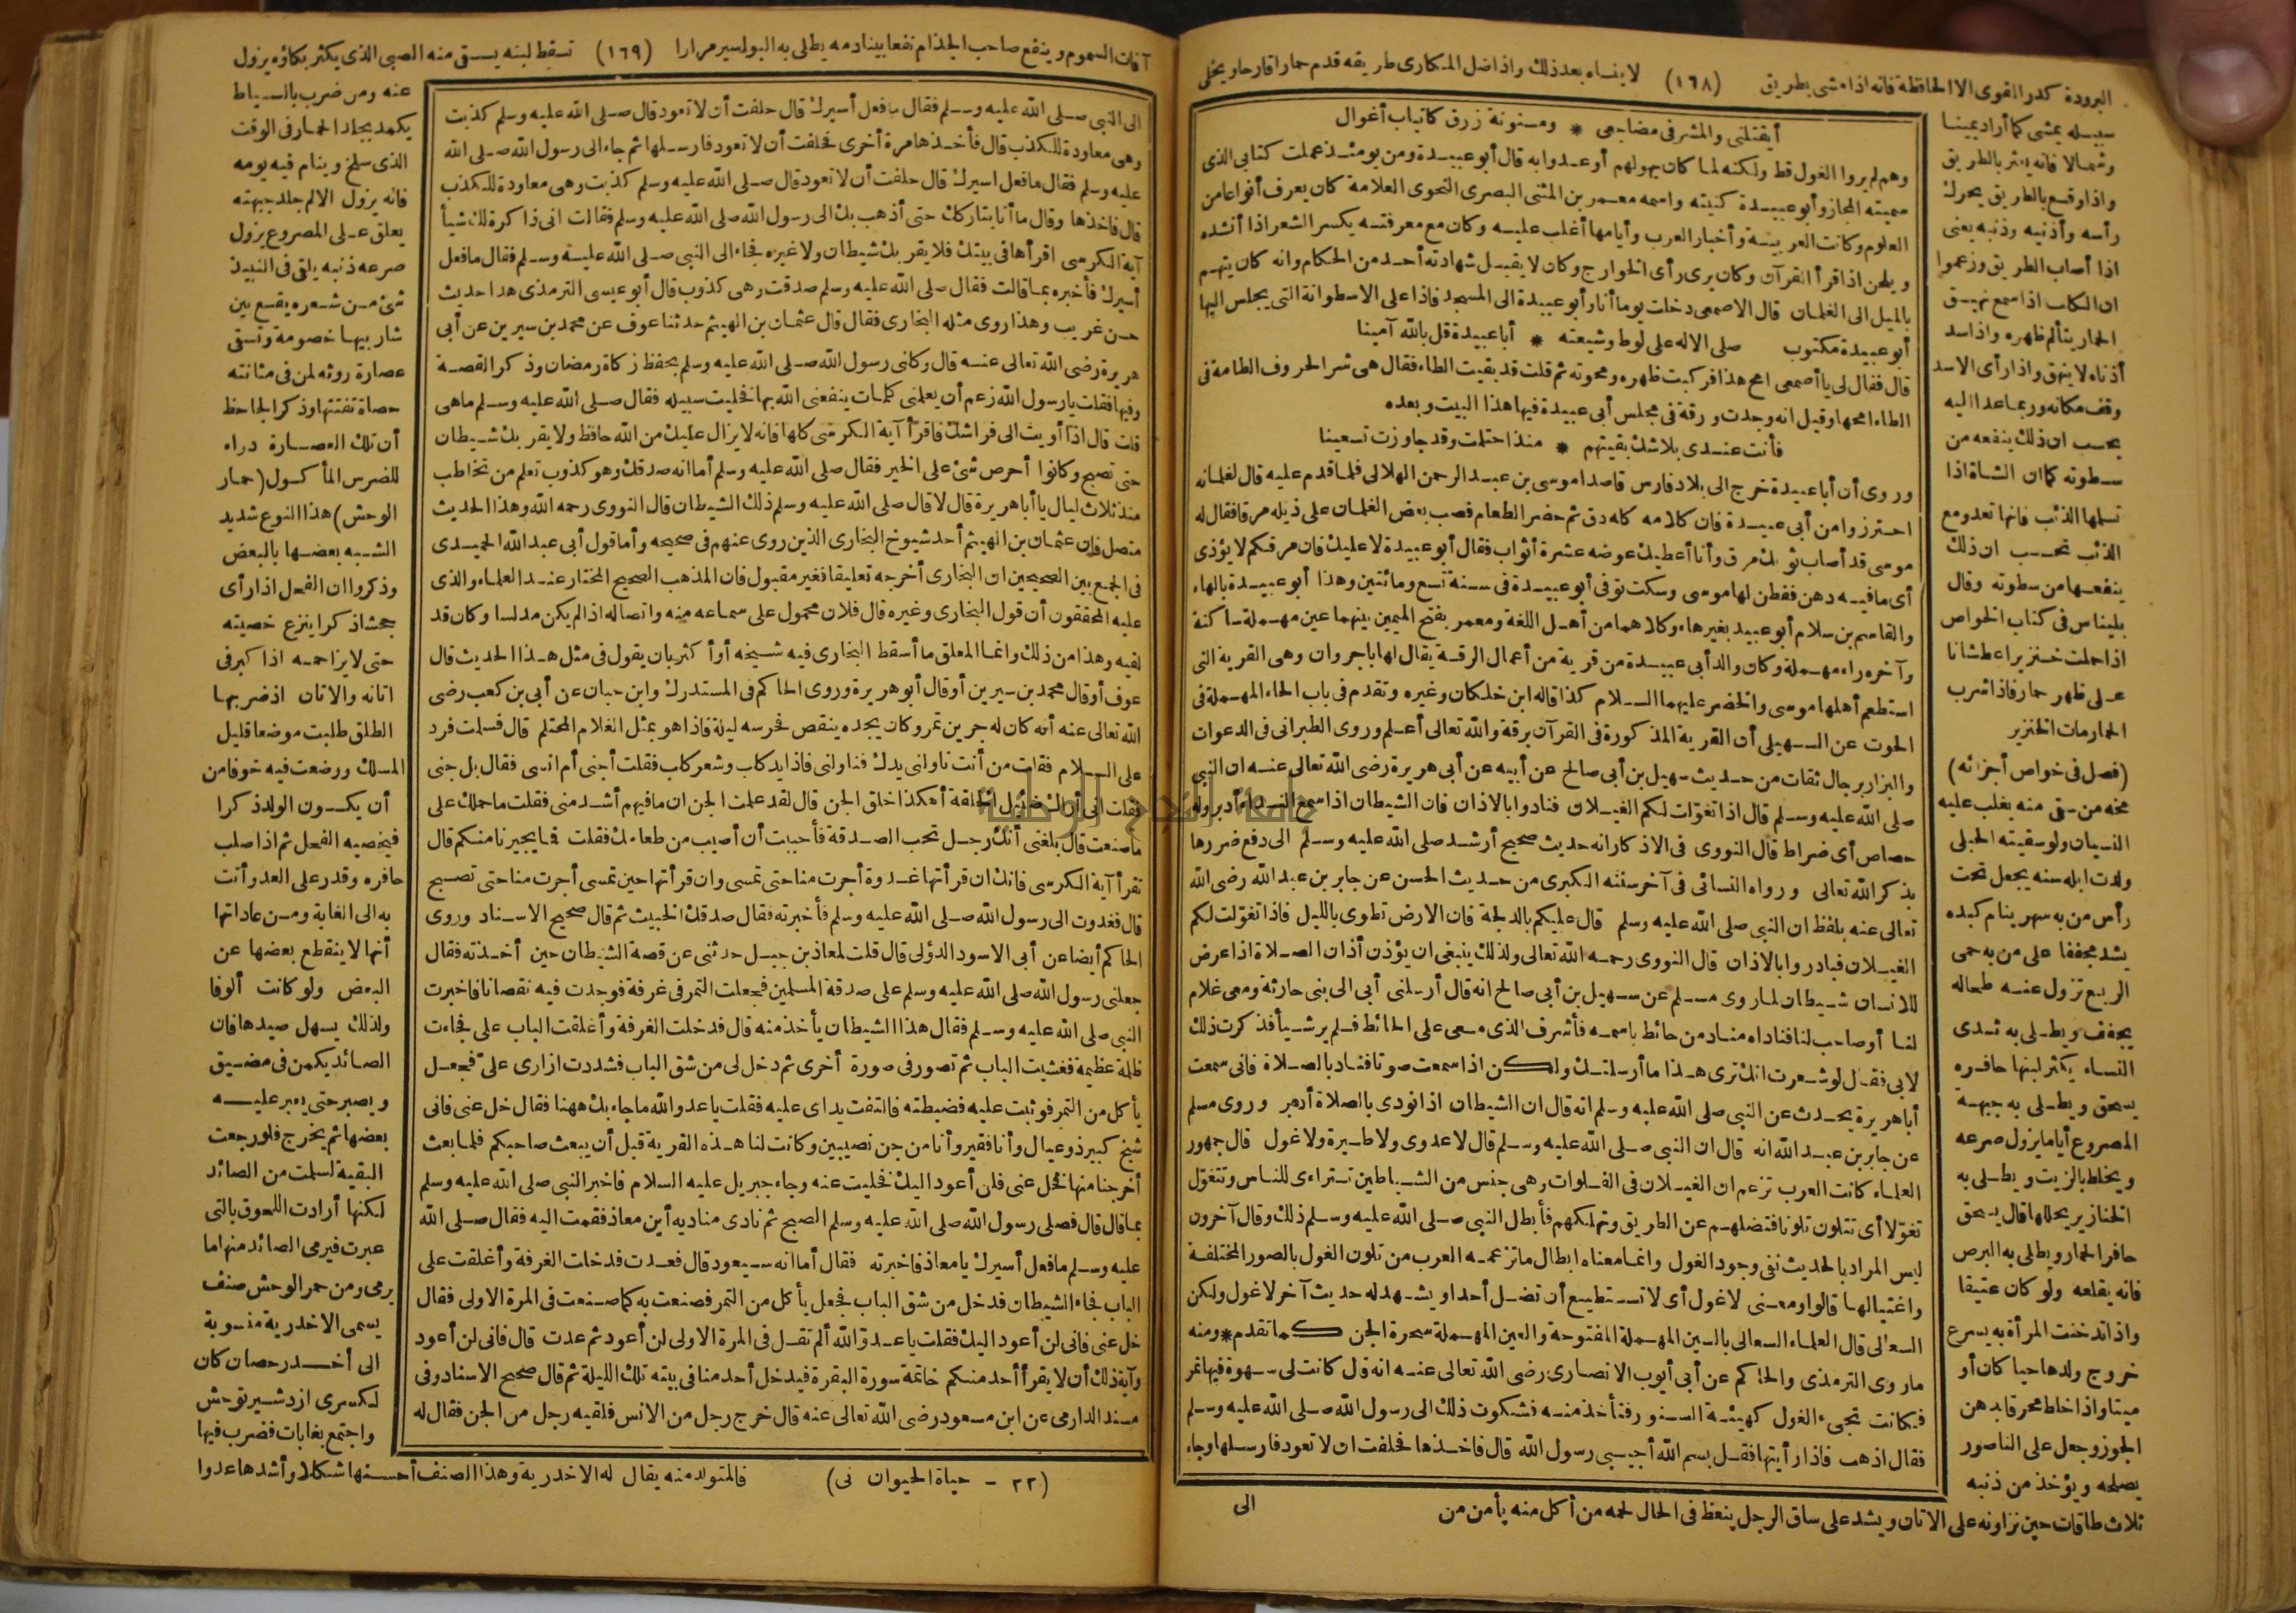 البرودة كدر القوى الا الحافظة فانه اذا مشى بطريق (١٦٨) لا ينساه بعد ذلك واذا ضل المكارى طريقه قدم حمارا فارحا ويخلى
سبيله يمشى كما أراد يمينا
وشمالا فانه يعثر بالطريق
واذا وقع بالطريق يحرك
رأسه وأذنيه وذنبه يعنى
اذا أصاب الطريق وزعموا
ان الكلب اذا سمع نهيق
الحمار يتألم ظهره واذا سد
أذناه لا ينهق واذا رأى الاسد
وقف مكانه وربما عدا اليه
يحسب ان ذلك ينفعه من
سطوته كما ان الشاة اذا
تسلمها الذئب فانها تعدو مع
الذئب تحسب ان ذلك
ينفعها من سطوته وقال
بليناس فى كتاب الخواص
اذا حملت خنزيرا عطشانا
على ظهر حمار فاذا شرب
الحمار مات الخنزير
(فصل فى خواص أجزائه)
مخه من سقى منه يغلب عليه
النسيان ولو سقيته الحبلى
ولدت ابله سنه يجعل تحت
رأس من به سهر ينام كبده
يشد مجففا على من به حمى
الربع تزول عنه طحاله
يجفف ويطلى به ثدى
النساء يكثر لبنها حافره
يسحق ويطلى به جبهة
المصروع أياما يزول صرعه
ويخلط بالزيت ويطلى به
الخنازير يحللها قال يسحق
حافر الحمار ويطلى به البرص
فانه يقلعه ولو كان عتيقا
واذا تدخنت المرأة به يسرع
خروج ولدها حيا كان أو
ميتا واذا خلط محرقا بدهن
الجوز وجعل على الناصور
يصلحه ويؤخذ من ذنبه
ثلاث طاقات حين نزاوته على الاتان ويشد على ساق الرجل ينعظ فى الحال لحمه من أكل منه يأمن من
أيقتلنى والمشرفى مضاجعى * ومسنونة زرق كأنياب أغوال
وهم لم يروا الغول قط ولكنه لما كان يهولهم أوعدوا به قال أبو عبيدة ومن يومئذ عملت كتابى الذى
سميته المجاز وأبو عبيدة كنيته واسمه معمر بن المثنى البصرى النحوى العلامة كان يعرف أنواعا من
العلوم وكانت العربية وأخبار العرب وأيامها أغلب عليه وكان مع معرفته يكسر الشعر اذا أنشده
ويلحن اذا قرأ القرآن وكان يرى رأى الخوارج وكان لا يقبل شهادته أحد من الحكام وانه كان يتهم
بالميل الى الغلمان قال الاصمعى دخلت يوما أنا وأبو عبيدة الى المسجد فاذا على الاسطوانة التى يجلس اليها
أبو عبيدة مكتوب صلى الاله على لوط وشيعته * أبا عبيدة قل بالله آمينا
قال فقال لى يا أصمعى امح هذا فركبت ظهره ومحوته ثم قلت قد بقيت الطاء فقال هى شر الحروف الطامة فى
الطاء امحها وقيل انه وجدت ورقة فى مجلس أبى عبيدة فيها هذا البيت وبعده
فأنت عندى بلا شك بقيتهم * منذ احتلمت وقد جاوزت تسعينا
وروى أن أبا عبيدة خرج الى بلاد فارس قاصدا موسى بن عبد الرحمن الهلالى فلما قدم عليه قال لغلمانه
احترزوا من أبى عبيدة فان كلامه كله دق ثم حضر الطعام فصب بعض الغلمان على ذيله مرقا فقال له
موسى قد أصاب ثوبك مرق وأنا أعطيك عوضه عشرة أثواب فقال أبو عبيدة لا عليك فان مرقكم لا يؤذى
أى ما فيه دهن ففطن لها موسى وسكت توفى أبو عبيدة فى سنة تسع ومائتين وهذا أبو عبيدة بالهاء
والقاسم بن سلام أبو عبيد بغير هاء وكلاهما من أهل اللغة ومعمر بفتح الميمين بينهما عين مهملة ساكنة
وآخره راء مهملة وكان والد أبى عبيدة من قرية من أعمال الرقة يقال لها باجروان وهى القرية التى
استطعم أهلها موسى والخضر عليهما السلام كذا قاله ابن خلكان وغيره وتقدم فى باب الحاء المهملة فى
الحوت عن السهيلى أن القرية المذكورة فى القرآن برقة والله تعالى أعلم وروى الطبرانى فى الدعوات
والبزار برجال ثقات من حديث سهيل بن أبى صالح عن أبيه عن أبى هريرة رضى الله تعالى عنه ان النبى
صلى الله عليه وسلم قال اذا تغولت لكم الغيلان فنادوا بالاذان فان الشيطان اذا سمع النداء أدبر وله
حصاص أى ضراط قال النووى فى الاذكار انه حديث صحيح أرشد صلى الله عليه وسلم الى دفع ضررها
بذكر الله تعالى ورواه النسائى فى آخر سننه الكبرى من حديث الحسن عن جابر بن عبد الله رضى الله
تعالى عنه بلفظ ان النبى صلى الله عليه وسلم قال عليكم بالدلجة فان الارض تطوى بالليل فاذا تغولت لكم
الغيلان فبادروا بالاذان قال النووى رحمه الله تعالى ولذلك ينبغى ان يؤذن أذان الصلاة اذا عرض
للانسان شيطان لما روى مسلم عن سهيل بن أبى صالح انه قال أرسلنى أبى الى بنى حارثة ومعى غلام
لنا أو صاحب لنا فناداه مناد من حائط باسمه فأشرف الذى معى على الحائط فلم ير شيأ فذكرت ذلك
لابى فقال لو شعرت انك ترى هذا ما أرسلتك ولكن اذا سمعت صوتا فناد بالصلاة فانى سمعت
أبا هريرة يحدث عن النبى صلى الله عليه وسلم انه قال ان الشيطان اذا نودى بالصلاة أدبر وروى مسلم
عن جابر بن عبد الله انه قال ان النبى صلى الله عليه وسلم قال لا عدوى ولا طيرة ولا غول قال جمهور
العلماء كانت العرب تزعم ان الغيلان فى الفلوات وهى جنس من الشياطين تتراءى للناس وتتغول
تغولا أى تتلون تلونا فتضلهم عن الطريق وتهلكهم فأبطل النبى صلى الله عليه وسلم ذلك وقال آخرون
ليس المراد بالحديث نفى وجود الغول وانما معناه ابطال ما تزعمه العرب من تلون الغول بالصور المختلفة
واغتيالها قالوا ومعنى لا غول أى لا تستطيع أن تضل أحدا ويشهد له حديث آخر لا غول ولكن
السعالى قال العلماء السعالى بالسين المهملة المفتوحة والعين المهملة سحرة الجن كما تقدم * ومنه
ما روى الترمذى والحاكم عن أبى أيوب الانصارى رضى الله تعالى عنه انه قال كانت لى سهوة فيها تمر
فكانت تجىء الغول كهيئة السنور فتأخذ منه فشكوت ذلك الى رسول الله صلى الله عليه وسلم
فقال اذهب فاذا رأيتها فقل بسم الله أجيبى رسول الله قال فأخذها فحلفت ان لا تعود فأرسلها وجاء
الى
آفات السموم وينفع صاحب الجذام نفعا بينا دمه يطلى به البواسير مرارا (١٦٩) تسقط لبنه يسقى منه الصبى الذى يكثر بكاؤه يزول
الى النبى صلى الله عليه وسلم فقال ما فعل أسيرك قال حلفت أن لا تعود قال صلى الله عليه وسلم كذبت
وهى معاودة للكذب قال فأخذها مرة أخرى فحلفت أن لا تعود فأرسلها ثم جاء الى رسول الله صلى الله
عليه وسلم فقال ما فعل اسيرك قال حلفت أن لا تعود قال صلى الله عليه وسلم كذبت وهى معاودة للكذب
قال فأخذها وقال ما أنا بتاركك حتى أذهب بك الى رسول الله صلى الله عليه وسلم فقالت انى ذاكرة لك شيأ
آية الكرسى اقرأها فى بيتك فلا يقربك شيطان ولا غيره فجاء الى النبى صلى الله عليه وسلم فقال ما فعل
أسيرك فأخبره بما قالت فقال صلى الله عليه وسلم صدقت وهى كذوب قال أبو عيسى الترمذى هذا حديث
حسن غريب وهذا روى مثله البخارى فقال قال عثمان بن الهيثم حدثنا عوف عن محمد بن سيرين عن أبى
هريرة رضى الله تعالى عنه قال وكلنى رسول الله صلى الله عليه وسلم بحفظ زكاة رمضان وذكر القصة
وفيها فقلت يا رسول الله زعم أن يعلمنى كلمات ينفعنى الله بها فخليت سبيله فقال صلى الله عليه وسلم ما هى
قلت قال اذا أويت الى فراشك فاقرأ آية الكرسى كلها فانه لا يزال عليك من الله حافظ ولا يقربك شيطان
حتى تصبح وكانوا أحرص شئ على الخير فقال صلى الله عليه وسلم أما انه صدقك وهو كذوب تعلم من تخاطب
منذ ثلاث ليال يا أبا هريرة قال لا قال صلى الله عليه وسلم ذلك الشيطان قال النووى رحمه الله وهذا الحديث
متصل فان عثمان بن الهيثم أحد شيوخ البخارى الذين روى عنهم فى صحيحه وأما قول أبى عبد الله الحميدى
فى الجمع بين الصحيحين ان البخارى أخرجه تعليقا فغير مقبول فان المذهب الصحيح المختار عند العلماء والذى
عليه المحققون أن قول البخارى وغيره قال فلان محمول على سماعه منه واتصاله اذا لم يكن مدلسا وكان قد
لقيه وهذا من ذلك وانما المعلق ما أسقط البخارى فيه شيخه أو أكثر بان يقول فى مثل هذا الحديث قال
عوف أو قال محمد بن سيرين أو قال أبو هريرة وروى الحاكم فى المستدرك وابن حبان عن أبى بن كعب رضى
الله تعالى عنه أنه كان له جرين تمر وكان يجده ينقص فحرسه ليلة فاذا هو بمثل الغلام المحتلم قال فسلمت فرد
على السلام فقلت من أنت ناولنى يدك فناولنى فاذا يد كلب وشعر كلب فقلت أجنى أم انسى فقال بل جنى
فقلت انى أراك ضئيل الخلقة أهكذا خلق الجن قال لقد علمت الجن ان ما فيهم أشد منى فقلت ما حملك على
ما صنعت قال بلغنى أنك رجل تحب الصدقة فأحببت أن أصيب من طعامك فقلت فما يجيرنا منكم قال
تقرأ آية الكرسى فانك ان قرأتها غدوة أجرت منا حتى تمسى وان قرأتها حين تمسى أجرت منا حتى تصبح
قال فغدوت الى رسول الله صلى الله عليه وسلم فأخبرته فقال صدقك الخبيث ثم قال صحيح الاسناد وروى
الحاكم أيضا عن أبى الاسود الدؤلى قال قلت لمعاذ بن جبل حدثنى عن قصة الشيطان حين أخذته فقال
جعلنى رسول الله صلى الله عليه وسلم على صدقة المسلمين فجعلت التمر فى غرفة فوجدت فيه نقصانا فأخبرت
النبى صلى الله عليه وسلم فقال هذا الشيطان يأخذ منه قال فدخلت الغرفة وأغلقت الباب على فجاءت
ظلمة عظيمة فغشيت الباب ثم تصور فى صورة أخرى ثم دخل لى من شق الباب فشددت ازارى على فجعل
يأكل من التمر فوثبت عليه فضبطته فالتفت يداى عليه فقلت يا عدو الله ما جاء بك ههنا فقال خل عنى فانى
شيخ كبير ذو عيال وأنا فقير وأنا من جن نصيبين وكانت لنا هذه القرية قبل أن يبعث صاحبكم فلما بعث
أخرجنا منها فخل عنى فلن أعود اليك فخليت عنه وجاء جبريل عليه السلام فأخبر النبى صلى الله عليه وسلم
بما قال قال فصلى رسول الله صلى الله عليه وسلم الصبح ثم نادى مناديه أين معاذ فقمت اليه فقال صلى الله
عليه وسلم ما فعل أسيرك يا معاذ فأخبرته فقال أما انه سيعود قال فعدت فدخلت الغرفة وأغلقت على
الباب فجاء الشيطان فدخل من شق الباب فجعل يأكل من التمر فصنعت به كما صنعت فى المرة الاولى فقال
خل عنى فانى لن أعود اليك فقلت يا عدو الله ألم تقل فى المرة الاولى لن أعود ثم عدت قال فانى لن أعود
وآية ذلك أن لا يقرأ أحد منكم خاتمة سورة البقرة فيدخل أحد منا فى بيته تلك الليلة ثم قال صحيح الاسناد وفى
مسند الدارمى عن ابن مسعود رضى الله تعالى عنه قال خرج رجل من الانس فلقيه رجل من الجن فقال له
عنه ومن ضرب بالسياط
يكمد بجلد الحمار فى الوقت
الذى سلخ وينام فيه يومه
فانه يزول الالم جلد جبهته
يعلق على المصروع يزول
صرعه ذنبه يلقى فى النبيذ
شئ من شعره يقع بين
شاربيها خصومة وتسقى
عصارة روثه لمن فى مثانته
حصاة تفتتها وذكر الجاحظ
أن تلك العصارة دواء
للضرس المأكول (حمار
الوحش) هذا النوع شديد
الشبه بعضها بالبعض
وذكروا ان الفحل اذا رأى
جحشا ذكرا ينزع خصيته
حتى لا يزاحمه اذا كبر فى
اتانه والاتان اذ ضربها
الطلق طلبت موضعا قليل
المسلك ووضعت فيه خوفا من
أن يكون الولد ذكرا
فيخصيه الفحل ثم اذا صلب
حافره وقدر على العدو أتت
به الى الغابة ومن عاداتها
أنها لا ينقطع بعضها عن
البعض ولو كانت ألوفا
ولذلك يسهل صيدها فان
الصائد يكمن فى مضيق
ويصبر حتى يعبر عليه
بعضها ثم يخرج فلو رجعت
البقية لسلمت من الصائد
لكنها أرادت اللحوق بالتى
عبرت فيرمى الصائد منها ما
يرمى ومن حمر الوحش صنف
يسمى الاخدرية منسوبة
الى أخدر حصان كان
لكسرى ازدشير توحش
واجتمع بغابات فضرب فيها
فالمتولد منه يقال له الاخدرية وهذا الصنف أحسنها شكلا وأشدها عدوا
(٢٢ - حياة الحيوان نى)
جامعة النجاح الوطنية